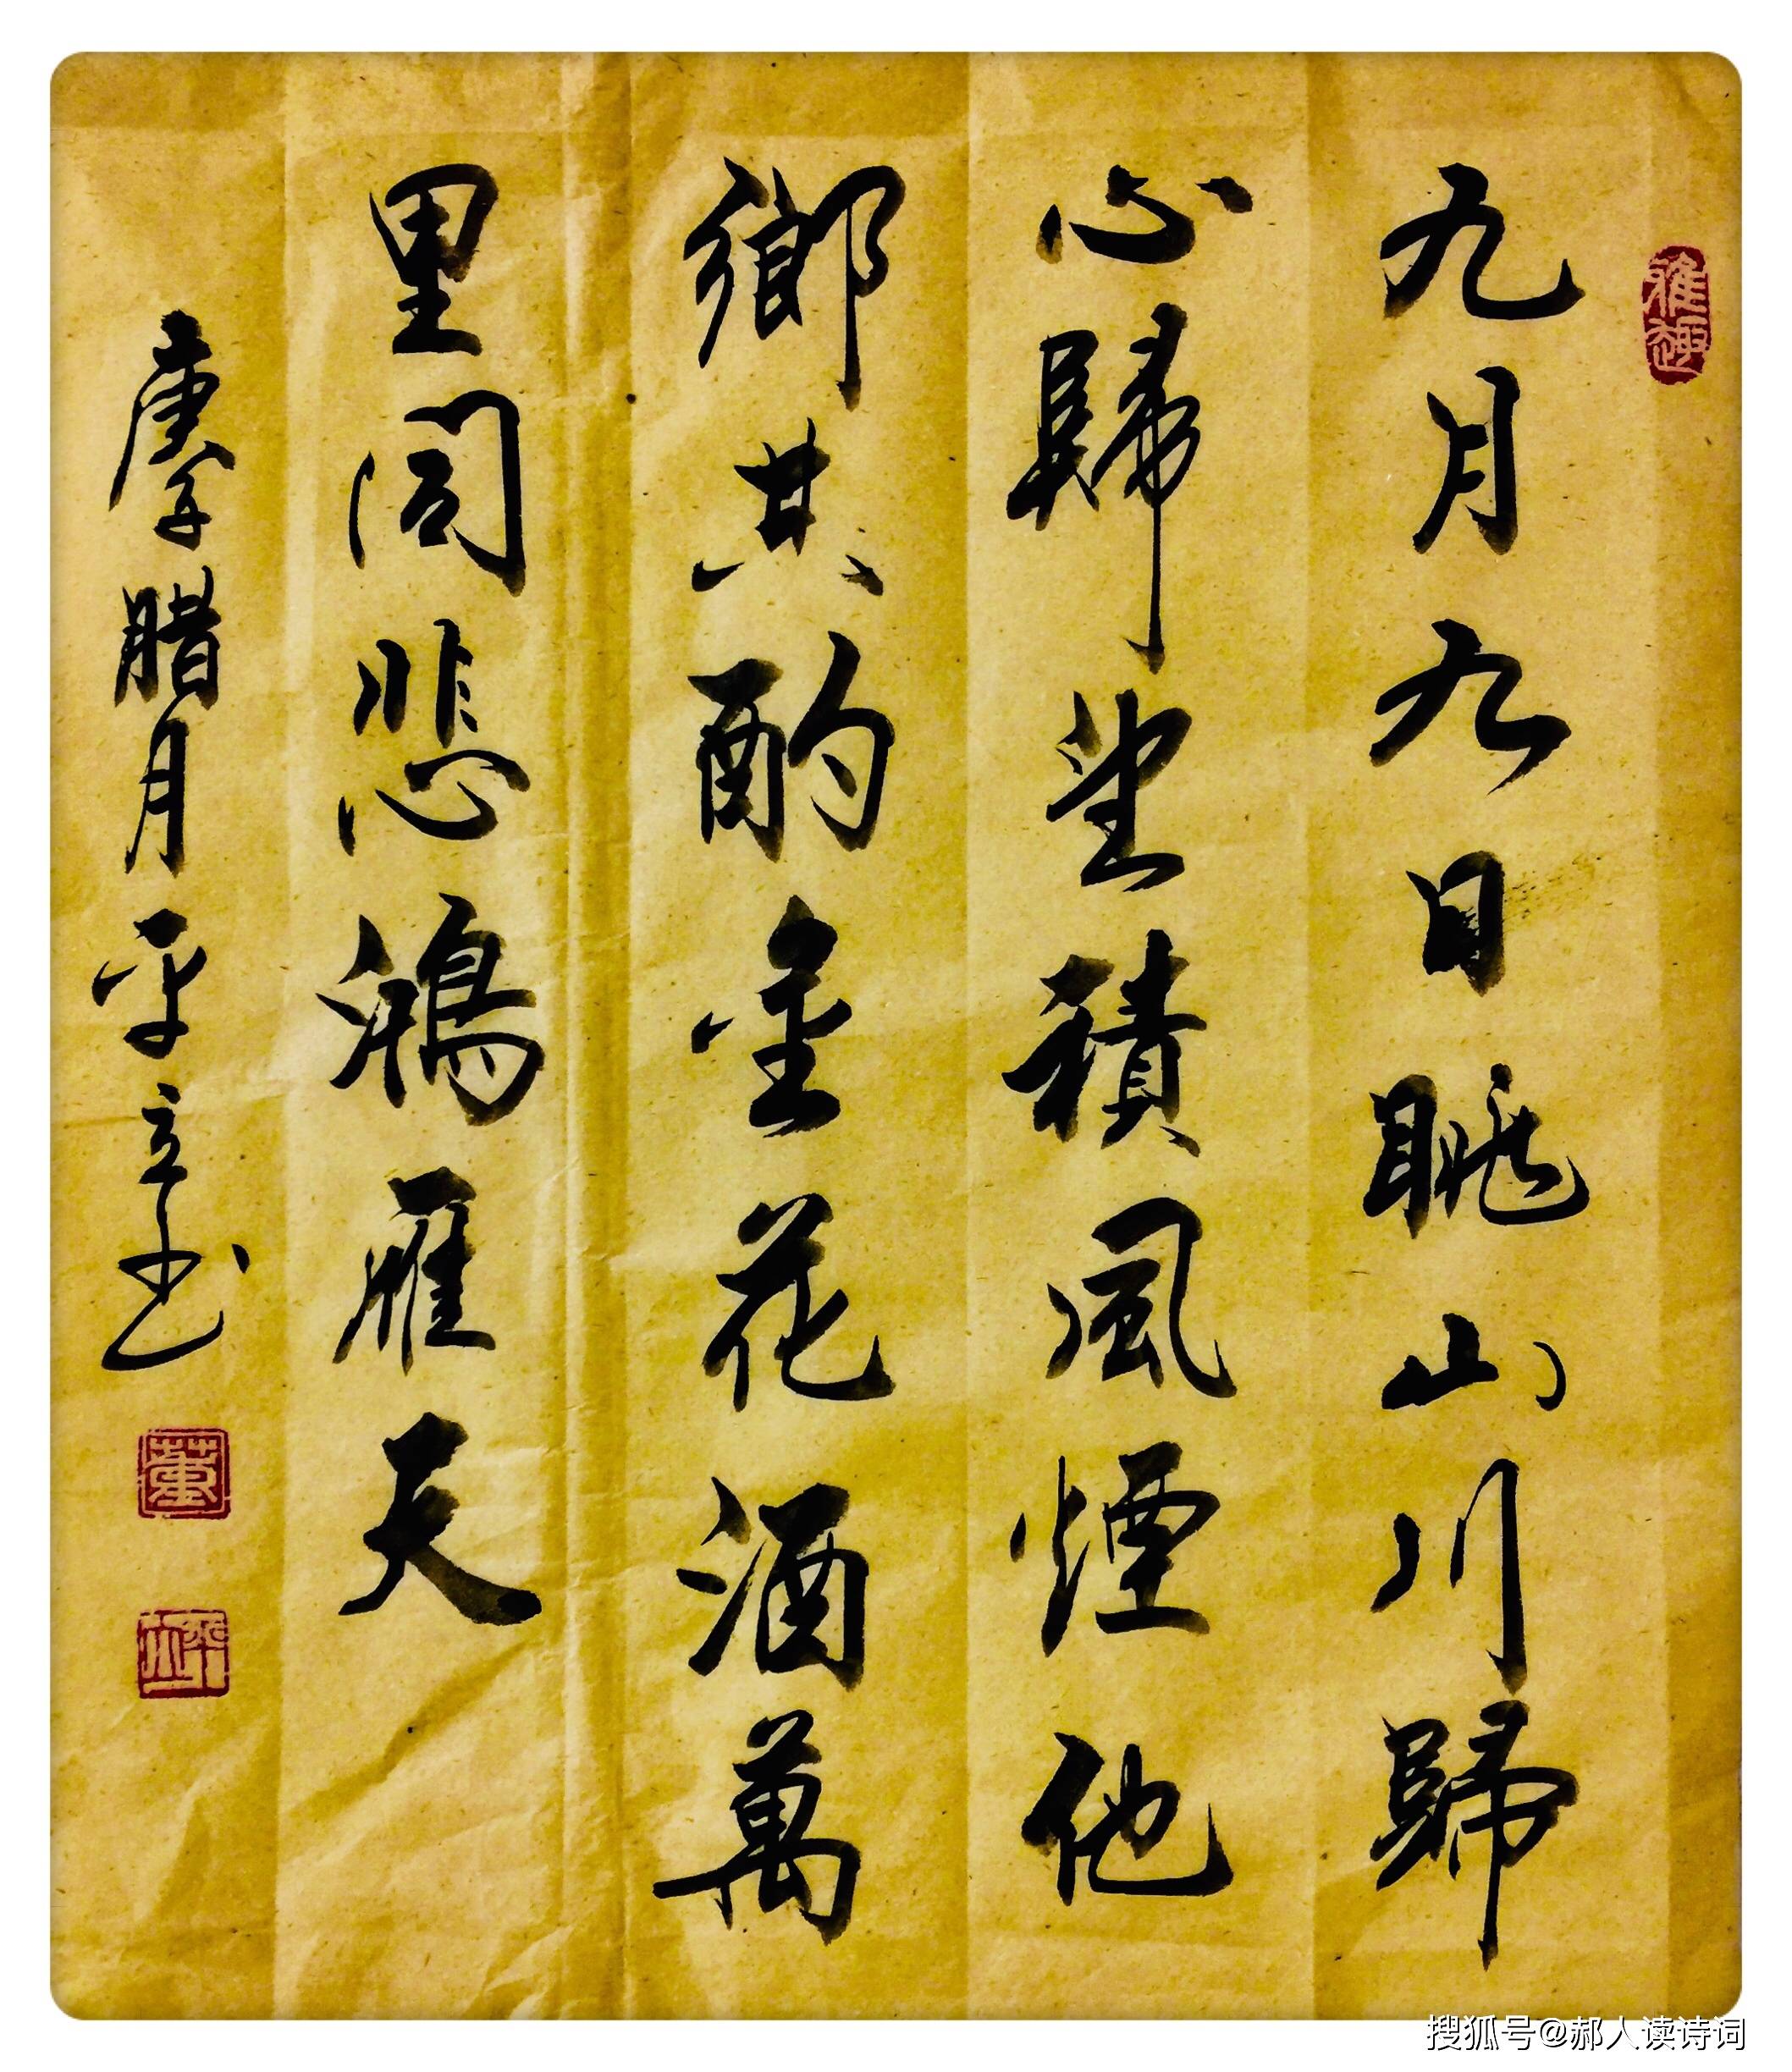 雅趣
九月九日眺山川歸
心歸望積風煙他
鄉共酌金花酒萬
里同悲鴻雁天
庚子腊月平立书
董
平立
搜狐号@郝人读诗词